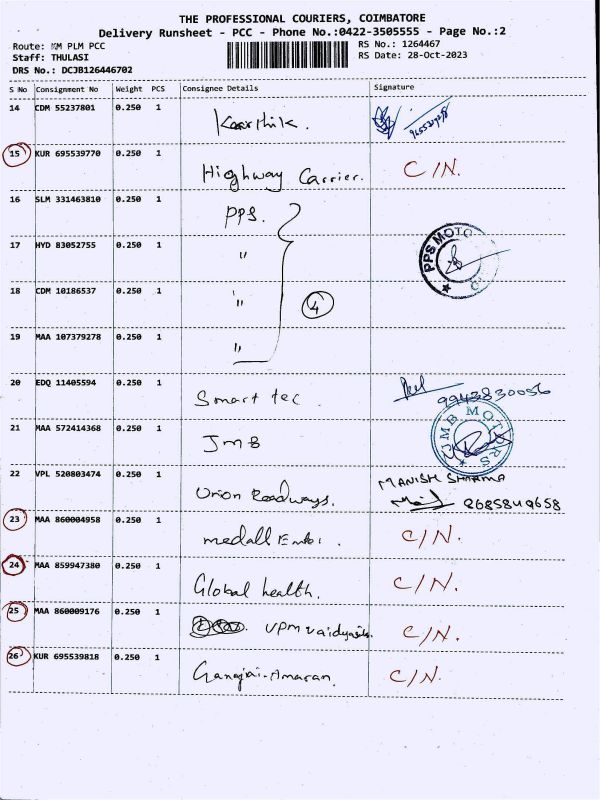 THE PROFESSIONAL COURIERS, COIMBATORE
Delivery Runsheet - PCC - Phone No.:0422-3505555 - Page No.:2
Route: MM PLM PCC
RS No.: 1264467
Staff: THULASI
RS Date: 28-Oct-2023
DRS No.: DCJB126446702
S No Consignment No Weight PCS Consignee Details Signature
14 CDM 55237801 0.250 1 Karthik.
15 KUR 695539770 0.250 1 Highway Carrier. C/N.
16 SLM 331463810 0.250 1 PPS.
17 HYD 83052755 0.250 1 " PPS MOTO
18 CDM 10186537 0.250 1 " 4
19 MAA 107379278 0.250 1 "
20 EDQ 11405594 0.250 1 Smart tec 9943830056
21 MAA 572414368 0.250 1 JMB JMB MOTORS
22 VPL 520803474 0.250 1 Union Roadways. MANISH SHARMA
9685849658
23 MAA 860004958 0.250 1 medall C/N.
24 MAA 859947380 0.250 1 Global health. C/N.
25 MAA 860009176 0.250 1 VPM C/N.
26 KUR 695539818 0.250 1 C/N.